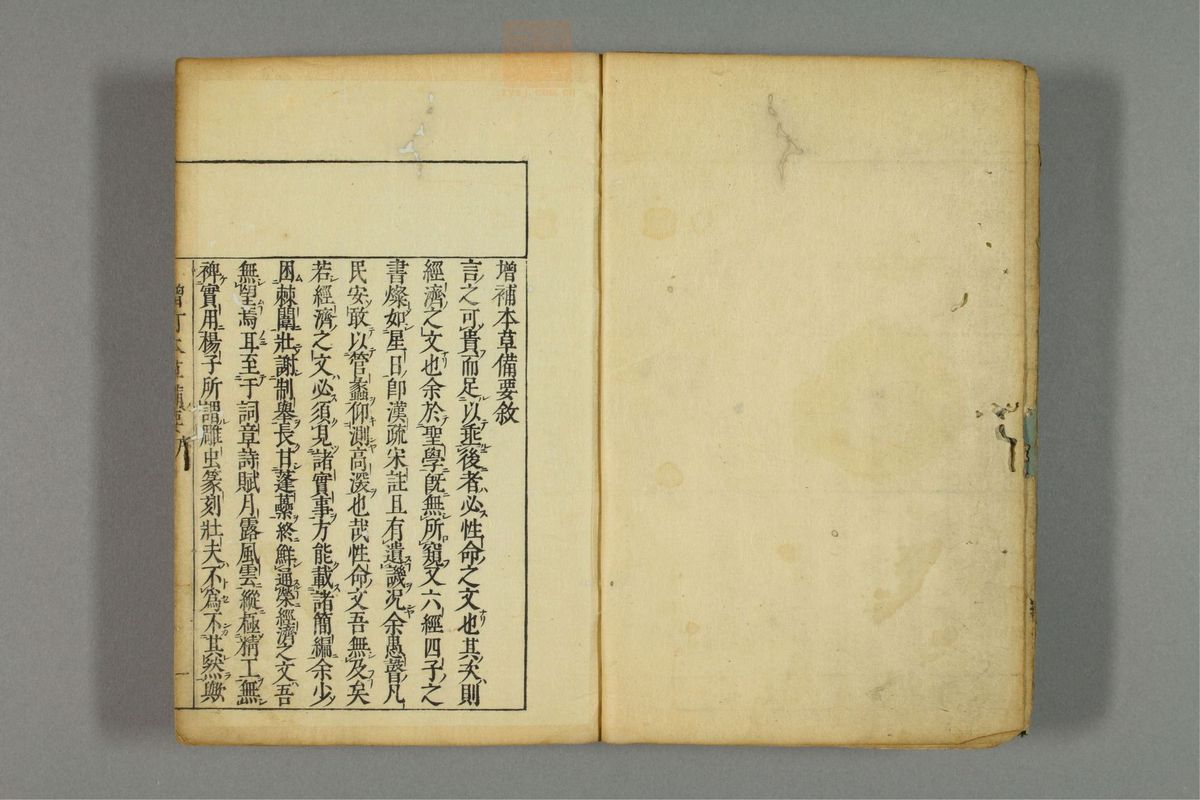 增補本草備要敘
言之可貴而足以垂後者必性命之文也其次則
經濟之文也余於聖學旣無所窺又六經四子之
書燦如星日卽漢疏宋註且有遺譏况余愚瞽凡
民安敢以管蠡仰測高深也哉性命文吾無及矣
若經濟之文必須見諸實事方能載諸簡編余少
困棘闈壯謝制舉長甘蓬藁終鮮通榮經濟之文吾
無望焉耳至于詞章詩賦月露風雲縱極精工無
裨實用楊子所謂雕虫篆刻壯夫不爲不其然歟